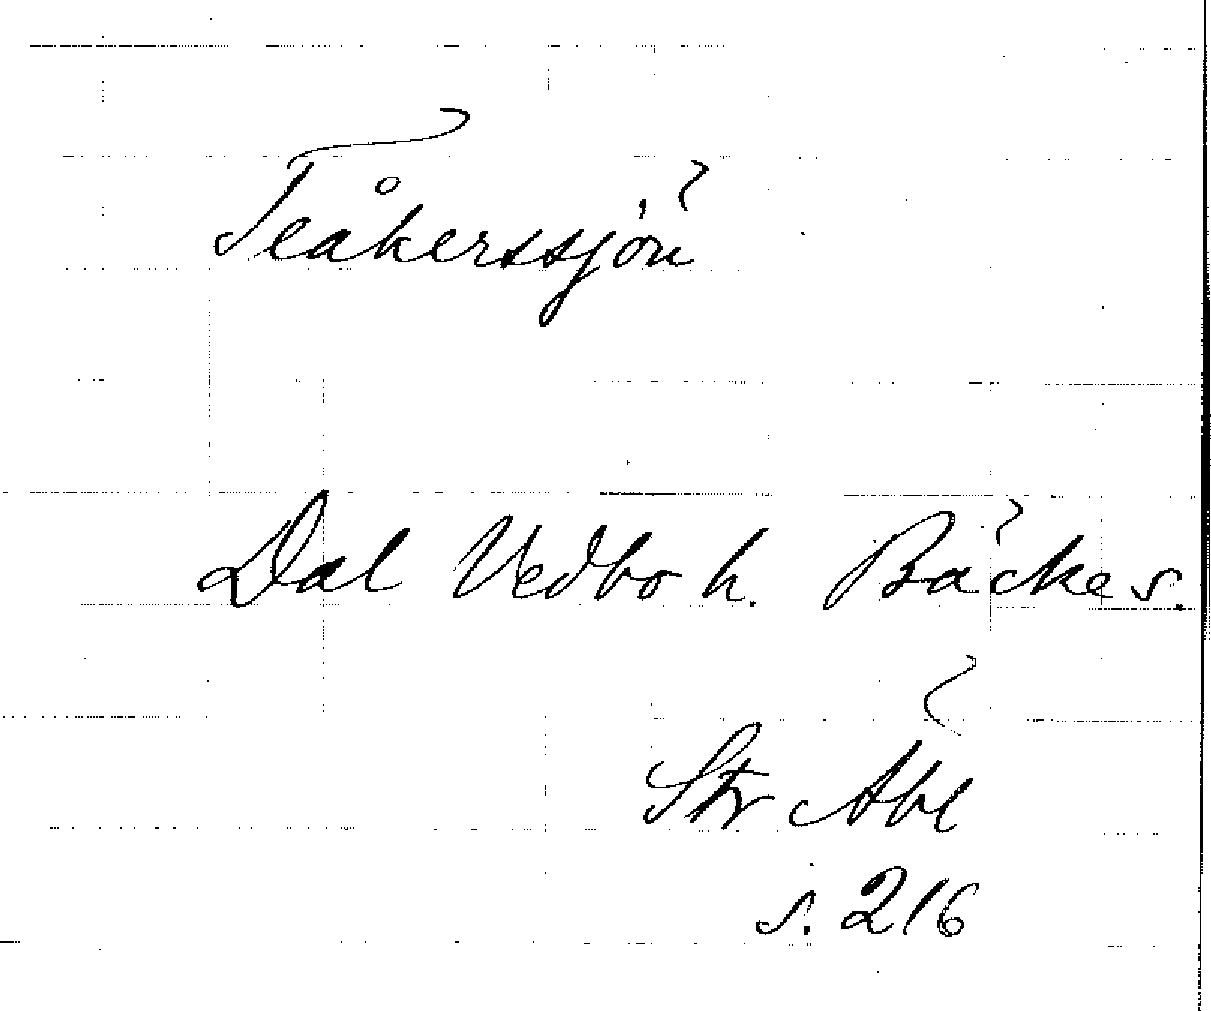 Teåkerssjön
Dal Vedbo h. Bäcke s.
Str Åbl
s. 216